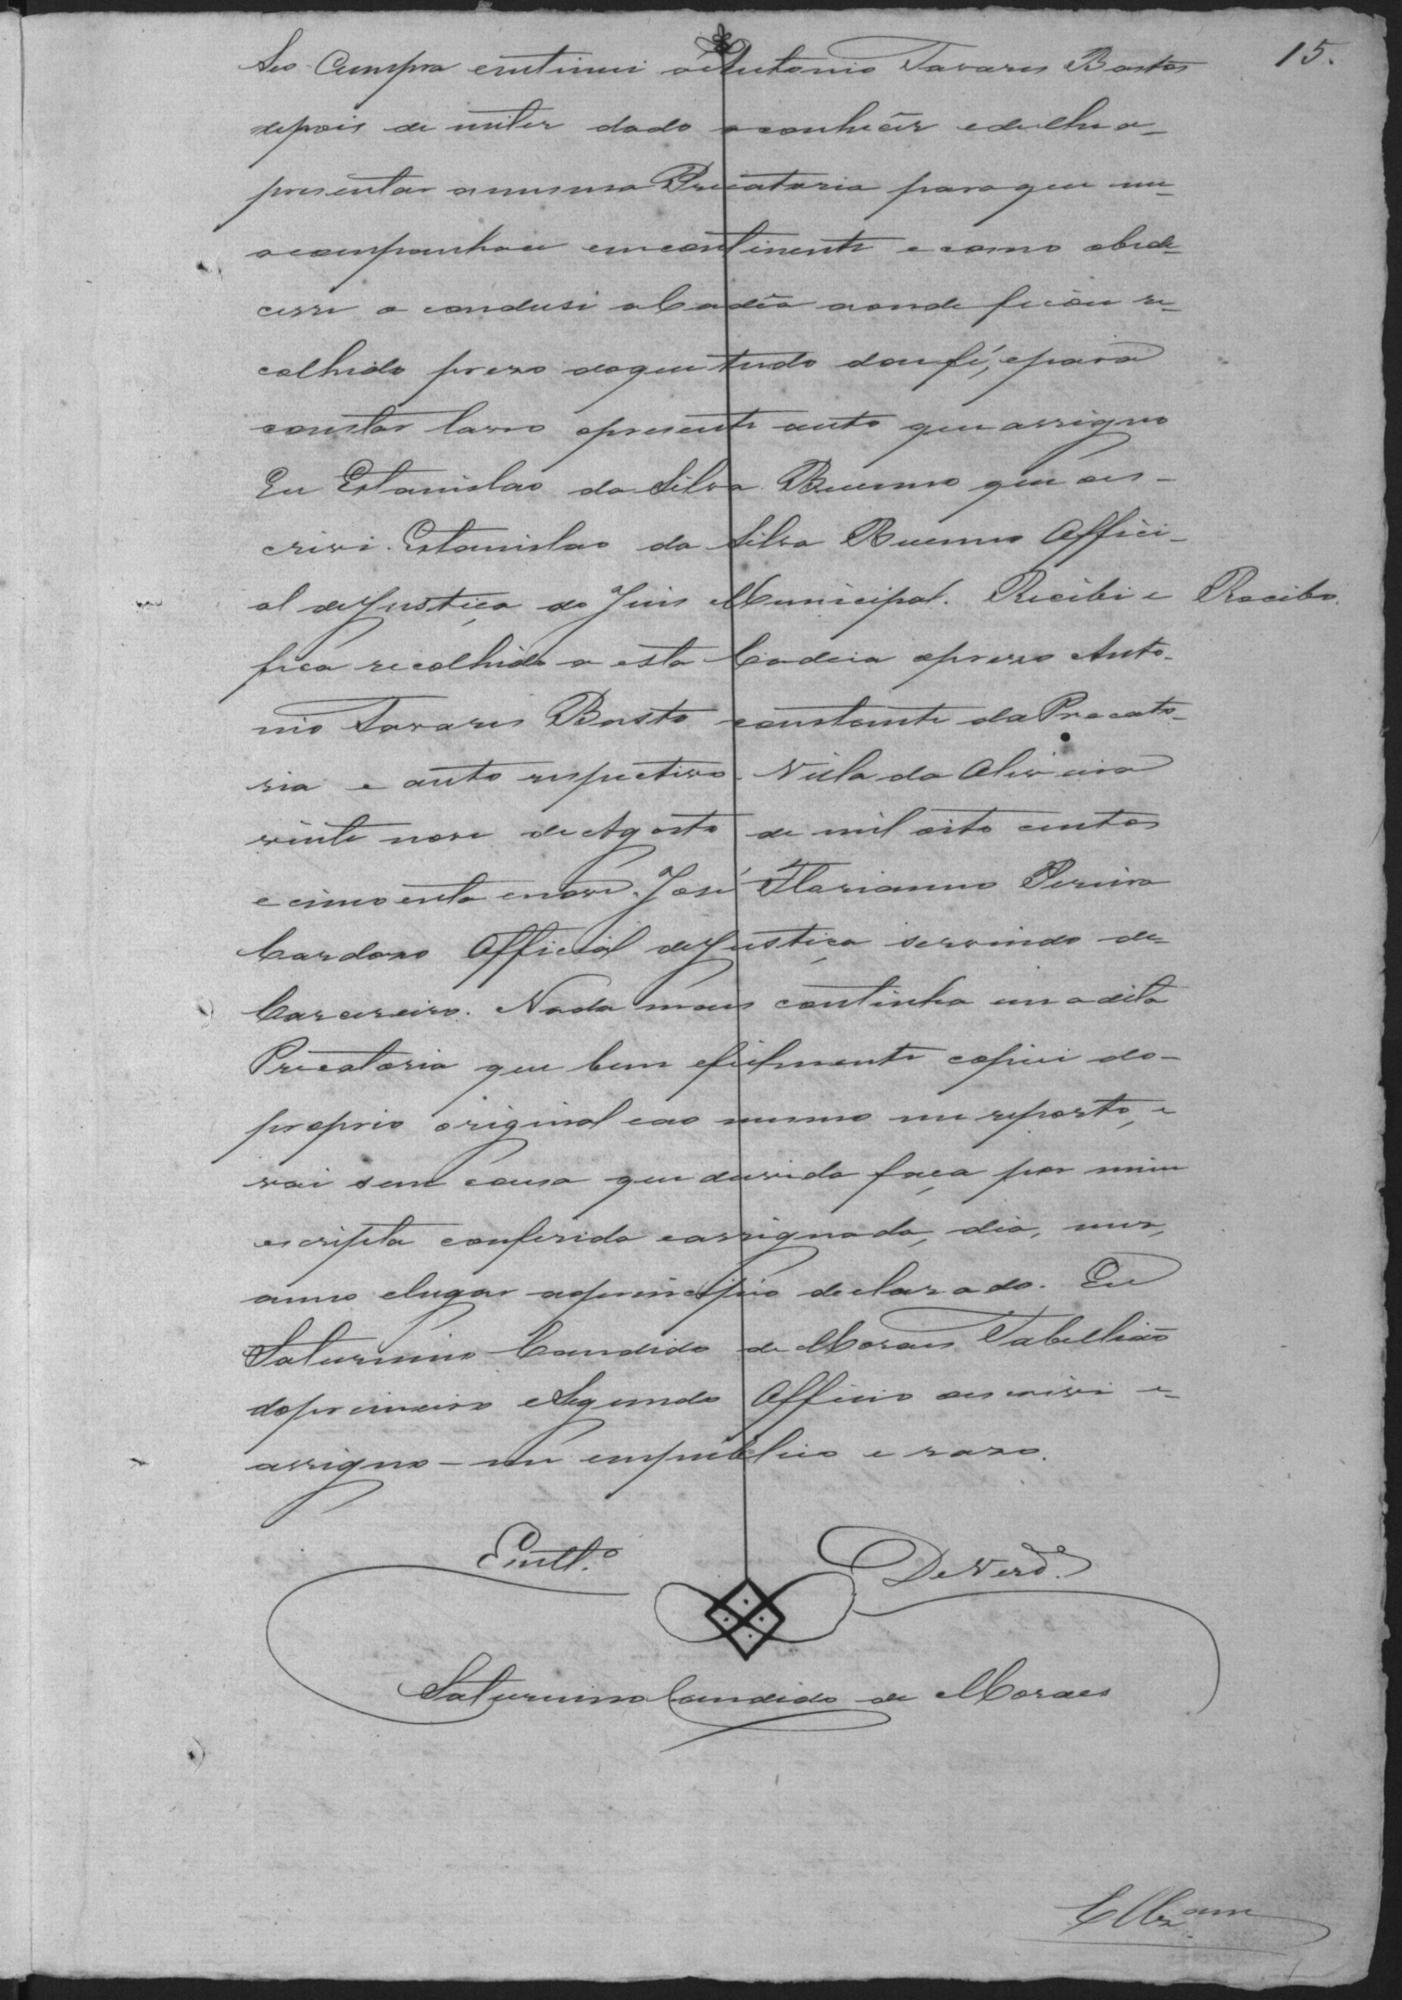 15.
Seo Cumpra entimei a Antonio Tavares Bastos
depois de miter dado aconhecêr edelhe a-
presentar amesma Precatoria paraque me-
acompanhace emcontinente e como obede-
cesse o condusi a Cadêa aonde ficou re-
colhido prezo doque tudo doufé, epara
constar lavro opresente auto que assigno
Eu Estanislao da Silva Buenno que es-
crivi. Estanislao da Silva Buenno Offici-
al deJustiça do Juis Municipal. Recibi e Recibo.
fica recolhido a esta Cadeia oprezo Anto-
nio Tavares Basto constante da Precato-
ria e auto respectivo. Villa da Oliveira
vinte nove de Agosto de mil oito centos
e cincoenta enove. José Florianno Pereira
Cardozo Official deJustiça servindo de
Carcereiro. Nada mais continha em a dita
Precatoria que bem efielmente copiei do-
proprio original eao mesmo me reporto, e
vai sem cousa que duvida faça por mim
escripta conferida eassignada, dia, mez,
anno elugar aoprincipio declarado. Eu
Saturnino Candido de Moraes Tabellião
doprimeiro eSegundo Officio escrivi e-
assigno-me empublico e razo.
Emtt.º De Verd.e
Saturnino Candido de Moraes